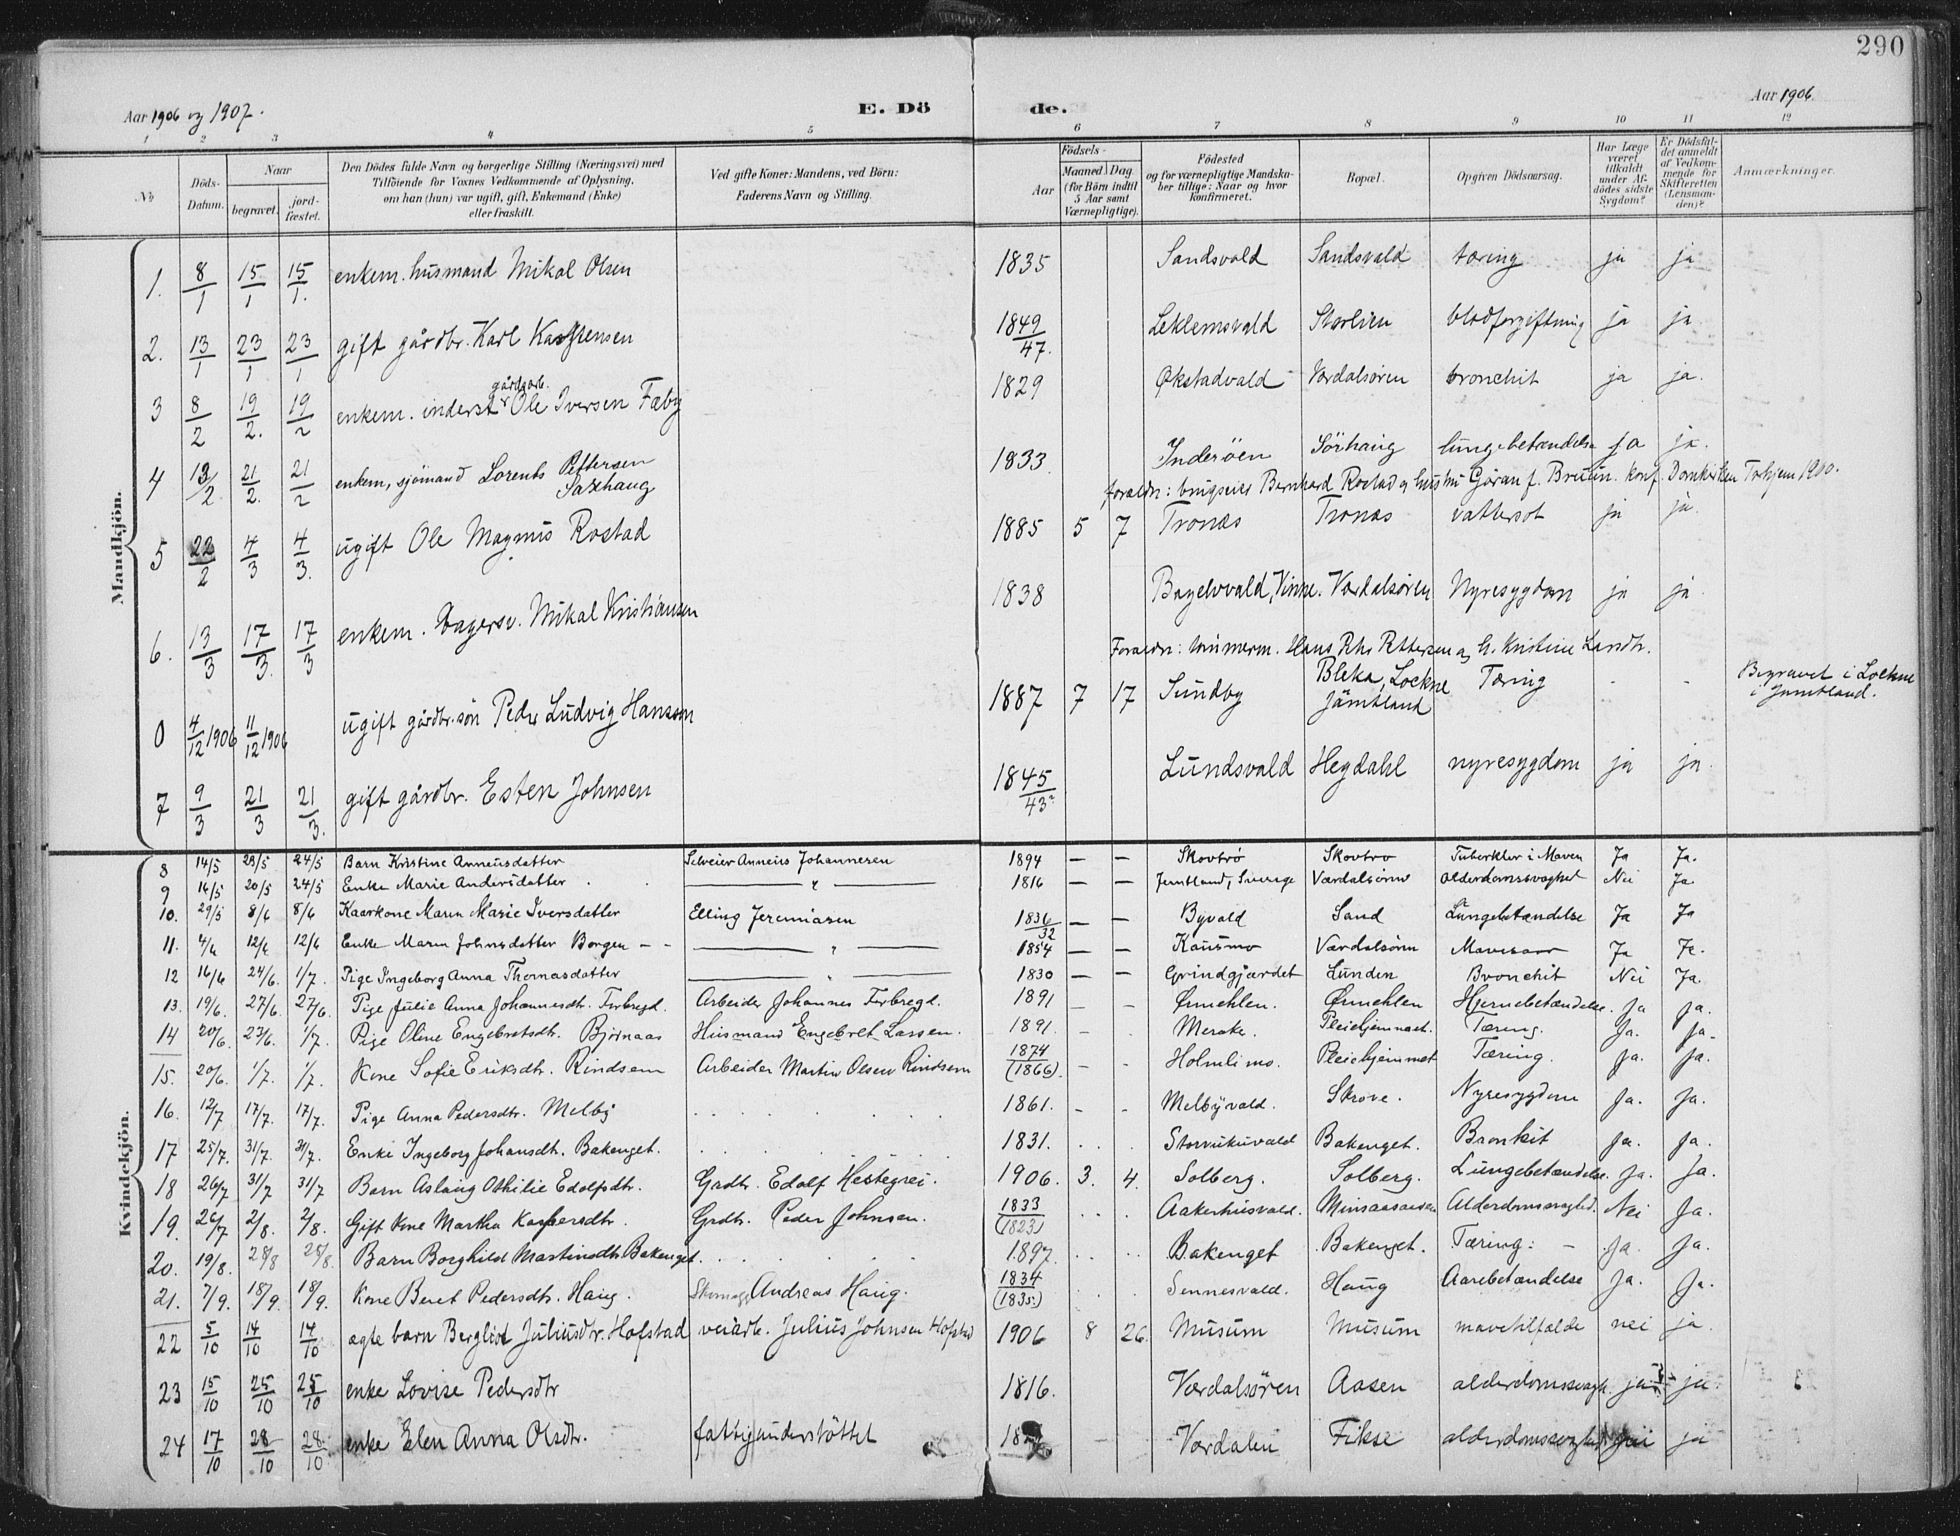 290
Aar 1906 og 1907.
E. Dö de.
Aar 1906.
1 2 3 4 5 6 7 8 9 10 11 12
No
Döds-Datum.
Naar
begravet.
jordfæstet.
Den Dödes fulde Navn og borgerlige Stilling (Næringsvei) med Tilföiende for Voxnes Vedkommende af Oplysning, om han (hun) var ugift, gift, Enkemand (Enke) eller fraskilt.
Ved gifte Koner: Mandens, ved Börn: Faderens Navn og Stilling.
Födsels-
Aar
Maaned
Dag
(for Börn indtil 5 Aar samt Værnepligtige).
Födested og for værnepligtige Mandskaber tillige: Naar og hvor konfirmeret.
Bopæl.
Opgiven Dödsaarsag.
Har Læge været tilkaldt under Afdödes sidste Sygdom?
Er Dödsfaldet anmeldt af Vedkommende for Skifteretten (Lensmanden)?
Anmærkninger.
Mandkjön.
1. 8/1 15/1 15/1. enkem. husmand Mikal Olsen 1835 Sandsvald Sandsvald tæring ja ja
2. 13/1 23/1 23/1 gift gårdbr. Karl Karstensen 1849/47. Leklemsvald Storlien blodforgiftning ja ja
gårdarb.
3 8/2 19/2. 19/2 enkem. inderst Ole Iversen Fæby 1829 Økstadvald Værdalsøren bronchit ja ja.
4 13/2 21/2. 21/2 enkem, sjömand Lorents Pettersen Saxhaug 1833 Inderöen Sörhaug lungebetændelse ja ja.
foraldr: brugseier Bernhard Rostad og hustru Gøran f. Bruun. konf. Domkirken Trhjem 1900.
5 22/2 4/3 4/3. ugift Ole Magnus Rostad 1885 5 7 Tronæs Tronæs vattersot ja ja.
6. 13/3 17/3. 17/3 enkem. Mikal Kristiansen 1838 Vinne. Værdalsøren Nyresygdom ja ja.
Foraldr: tömmerm. Hans Ptr. Pettersen og h. Kristine Landtr.
0 4/12 1906 11/12 1906 ugift gårdbr. søn Peder Ludvig Hansson 1887 7 17 Sundby Bleka, Lockne Jämtland Tæring - - Begravet i Lockne i Jämtland.
7 9/3 21/3 21/3. gift gårdbr. Esten Johnsen 1845/43 Lundsvald Hegdahl nyresygdom ja ja.
Kvindekjön.
8 14/5 23/5 24/5 Barn Kristine Anneusdatter Selveier Anneus Johannesen 1894 — — Skovtrø Skovtro Tuberkler i Maven Ja Ja.
9 14/5 20/5 24/5 Enke Marie Andersdatter — " — 1816 — — Jemtland, Sverige Værdalsøren Alderdomssvaghet Nei Ja.
10. 29/5 8/6 8/6 Kaarkone Maren Marie Iversdatter Elling Jeremiasen 1836/32 — — Byvald Sand Lungebetændelse Ja Ja
11. 4/6 12/6 12/6 Enke Maren Johnsdatter Borgen - - — " — 1854 — — Kausmo Værdalsøren Mavesaar Ja Ja.
12 16/6 24/6. 1/7. Pige Ingeborg Anna Thomasdatter — " — 1830 — — Grindgjærdet Lunden Bronchit Nei Ja.
13. 19/6. 27/6. 27/6. Pige Julie Anna Johannesdtr. Ferbregd. Arbeider Johannes Ferbregd. 1891 — - Ørmehlen. Ørmehlen Hjernebetændelse. Ja Ja.
14 20/6. 23/6. 1/7. Pige Oline Engebretsdtr. Bjørnaas Husmand Engebret Larsen. 1891. - - Merake. Pleiehjemmet. Tæring. Ja. Ja.
15. 20/6. 1/7. 1/7. Kone Sofie Eriksdtr. Rindsem Arbeider Martin Olsen Rindsem 1874 (1866). - - Holmlimo. Pleiehjemmet Tæring. Ja. Ja.
16. 12/7 17/7. 17/7. Pige Anna Pedersdtr. Melby 1861. - - Melbyvald. Skrove. Nyresygdom Ja. Ja.
17 25/7. 31/7. 31/7. Enke Ingeborg Johansdtr. Bakenget. 1831. Storvukuvald Bakenget. Bronkit Ja. Ja.
18 26/7 31/7 31/7 Barn Aslaug Othilie Edolfsdtr. Grdbr. Edolf Hestegrei. 1906. 3. 4. Solberg. Solberg. Lungebetændelse. Ja. Ja.
19. 26/7 2/8. 2/8. Gift Kone Martha Kaspersdtr. Grdbr. Peder Johnsen. 1833 (1823) Aakerhusvald. Alderdomssvaghed. Nei Ja.
20. 19/8. 28/8 25/8. Barn Borghild Martinsdtr. Bakenget. 1897. Bakenget Bakenget. Tæring. - Ja. Ja.
21. 7/9. 18/9. 18/9. Kone Beret Pedersdtr. Haug. Skomag. Andreas Haug. 1834 (1835.) Sennesvald. Haug Aarebetændelse Ja. Ja.
22 5/10 14/10 14/10 ægte barn Bergliot Juliusdtr. Hofstad veiarb. Julius Johnsen Hofstad 1906 8 26. Musum Musum mavetilfælde nei ja
23 15/10 25/10 25/10 enke Lovise Pedersdtr 1816. Værdalsören Aasen alderdomssvagh. ja ja.
24 17/10 28/10 28/10 enke Elen Anna Olsdtr. fattigunderstöttet Værdalen Fikse alderdomssvaghed ja